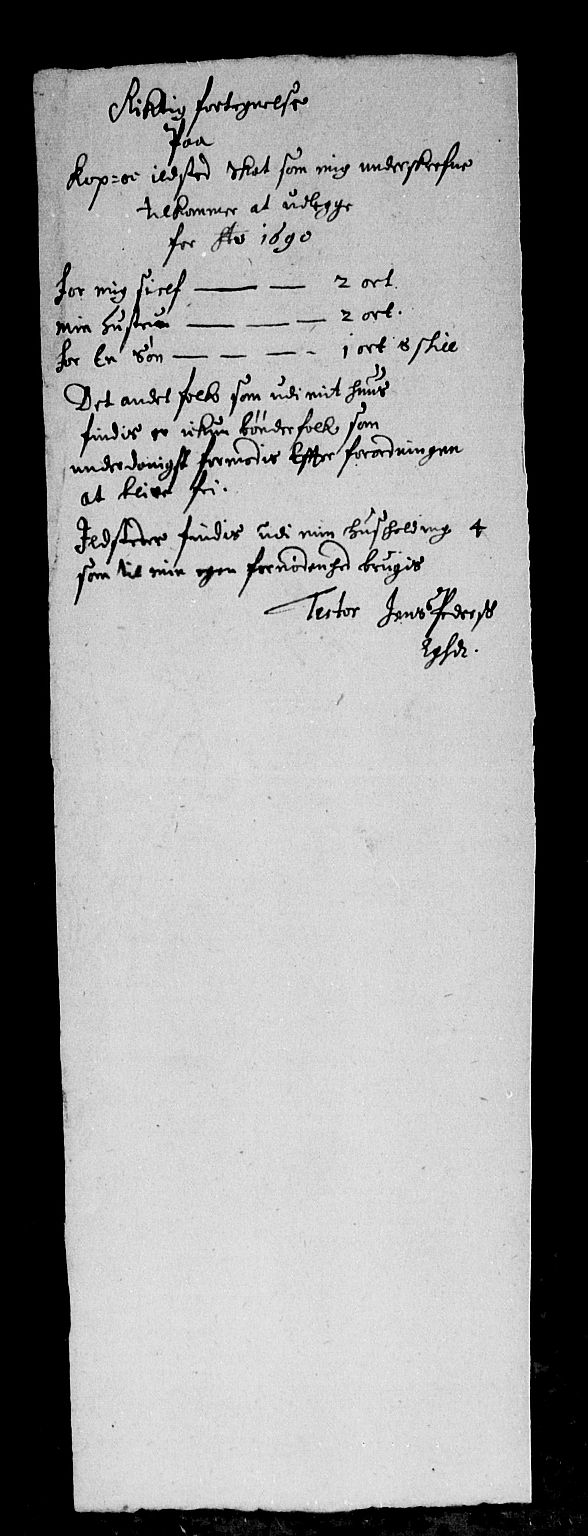 Riktig fortegnelse
Paa
Kop= oc ildsted Skat som mig underskrefne
tilkommer at udlegge
for Ao 1690
for mig sielf — — 2 ort.
min hustru — — — 2 ort.
for En Søn — — — - 1 ort 8 skill
Det andet folk som udi mit huus
findis er ickun bønderfolk som
underdanigst formodis Effter forordningen
at blive fri.
Ildsteder findis udi min husholding 4
som til min egen fornødenhed brugis
Testor Jens Pederss